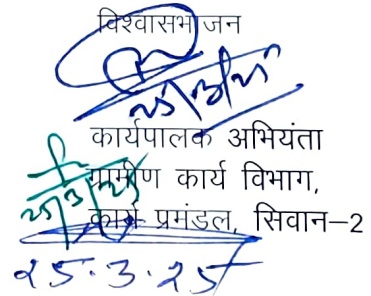 विश्वासभाजन
25/3/25
कार्यपालक अभियंता
ग्रामीण कार्य विभाग,
25/3/25
कार्य प्रमंडल, सिवान–2
25.3.25